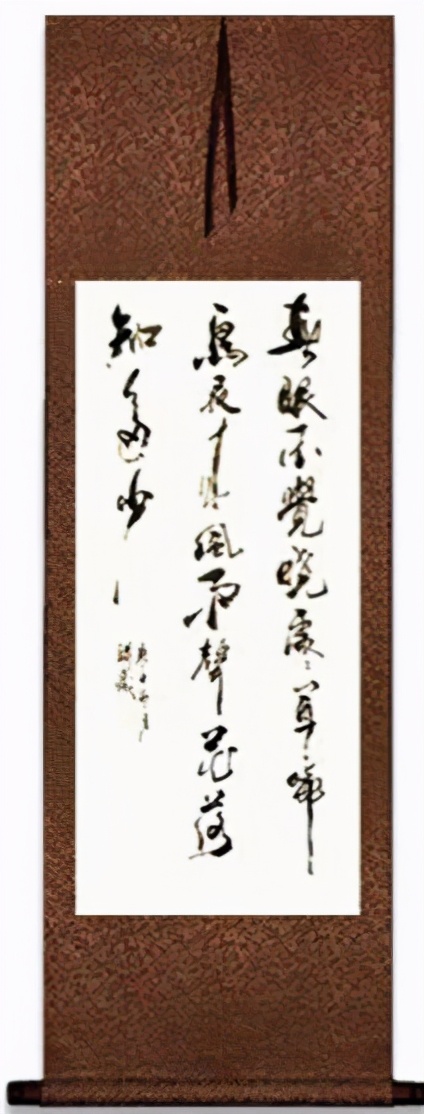 春眠不覺曉處々聞啼
鳥夜來風雨聲花落
知多少